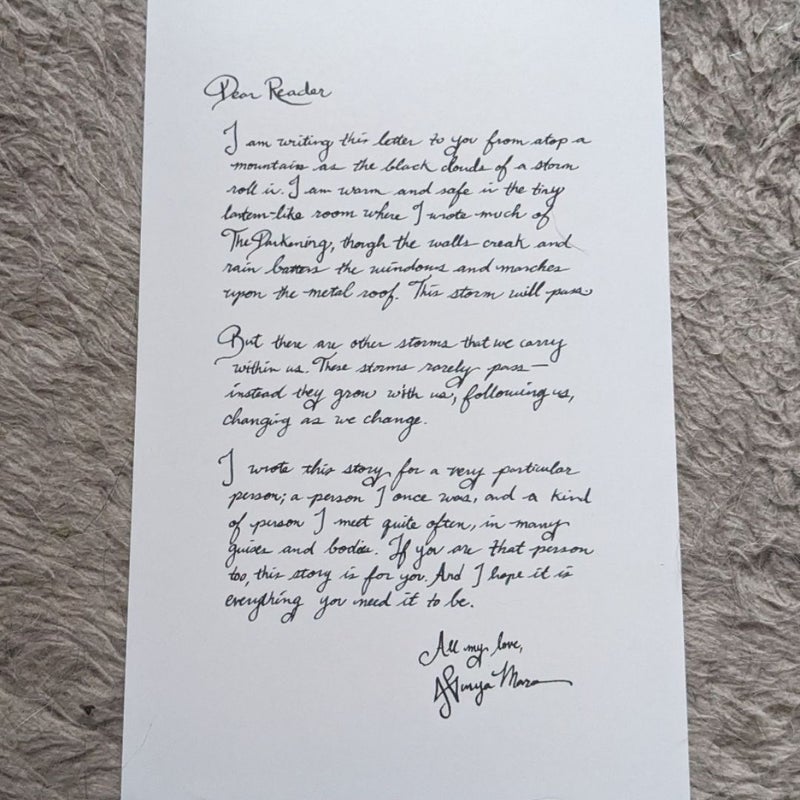 Dear Reader
I am writing this letter to you from atop a
mountain as the black clouds of a storm
roll in. I am warm and safe in the tiny
lantern-like room where I wrote much of
The Darkening, though the walls creak and
rain batters the windows and marches
upon the metal roof. This storm will pass
But there are other storms that we carry
within us. These storms rarely pass—
instead they grow with us, following us,
changing as we change.
I wrote this story for a very particular
person; a person I once was, and a kind
of person I meet quite often, in many
guises and bodies. If you are that person
too, this story is for you. And I hope it is
everything you need it to be.
All my love,
Sunya Mara